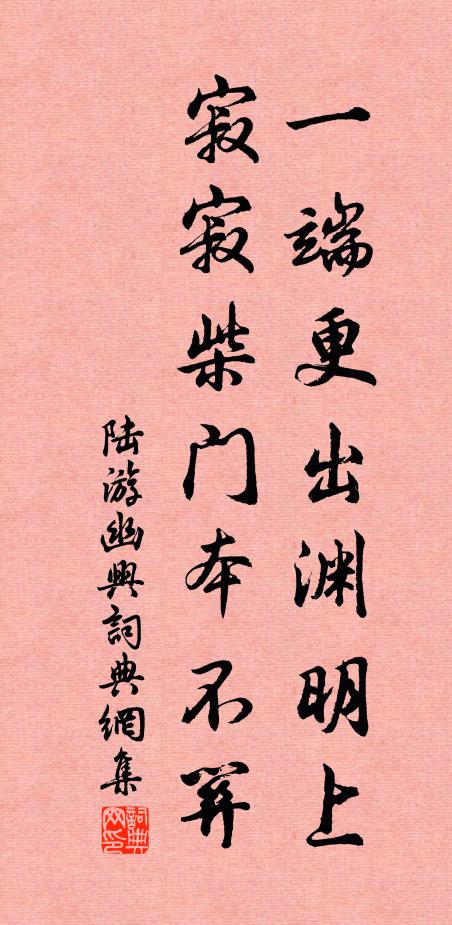 一端更出渊明上
寂寂柴门本不关
陆游幽興詞典網集
詞典网印